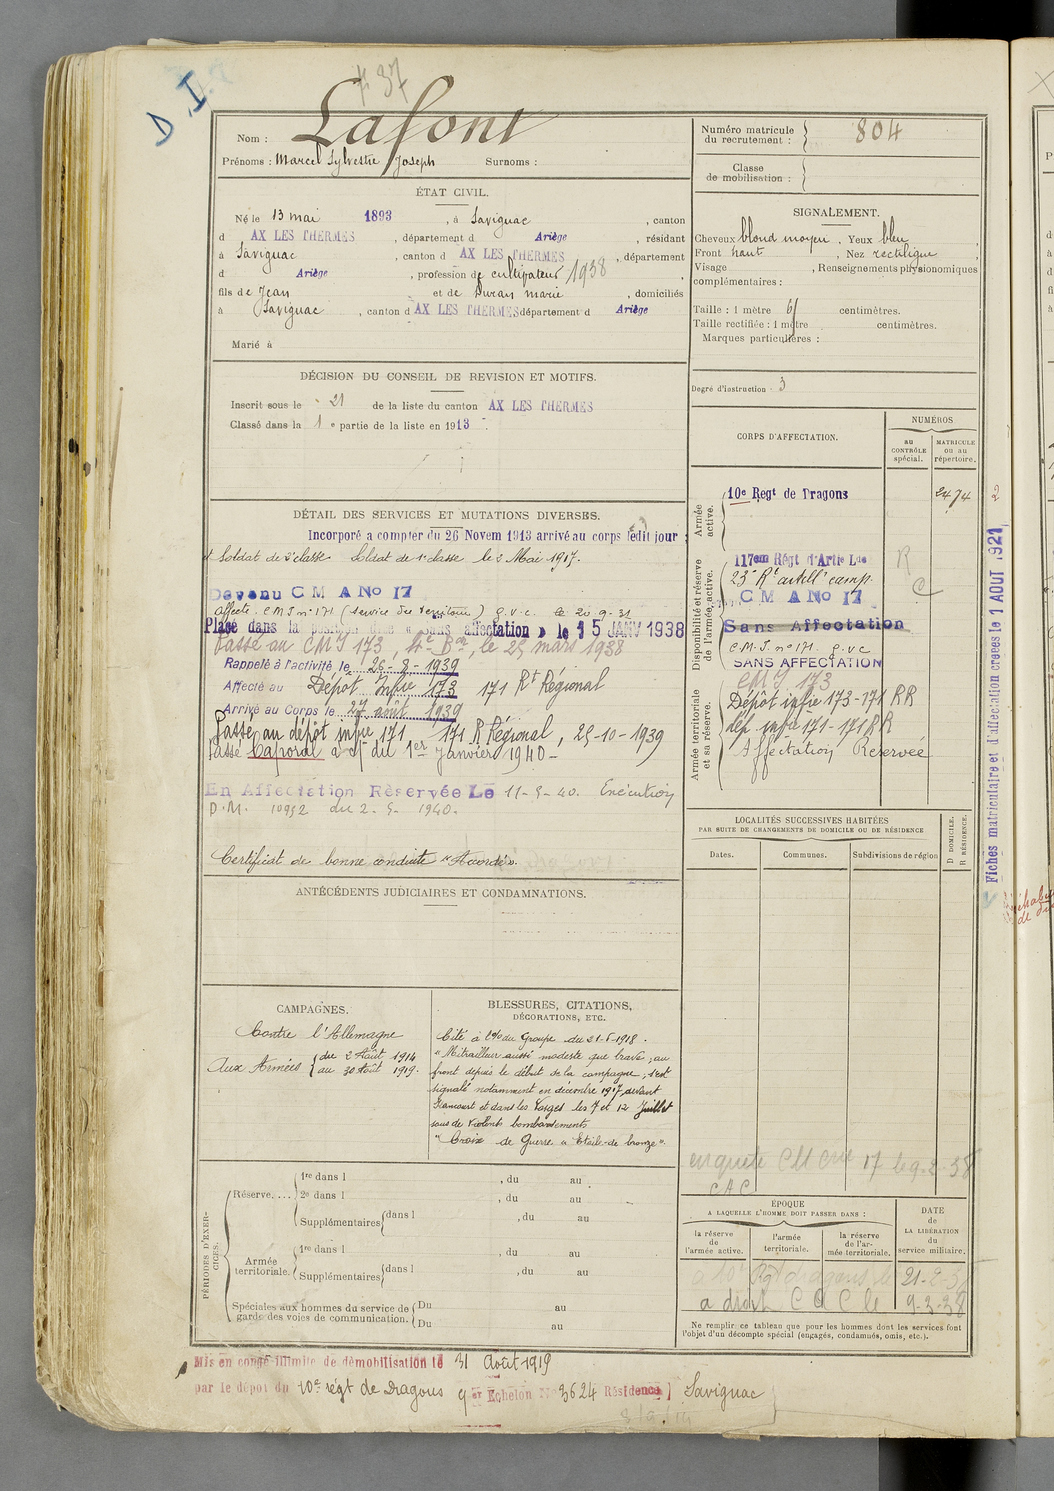 D.I.
# 37
Nom : Lafont
Prénoms : Marcel Sylvestre Joseph Surnoms :
Numéro matricule du recrutement : 804
Classe de mobilisation :
ÉTAT CIVIL.
Né le 13 mai 1893, à Savignac, canton
d AX LES THERMES, département d Ariège, résidant
à Savignac, canton d AX LES THERMES, département
d Ariège, profession de cultivateur 1938
fils de Jean et de Duran marie, domiciliés
à Savignac, canton d AX LES THERMES département d Ariège
Marié à
SIGNALEMENT.
Cheveux blond moyen, Yeux bleu,
Front haut, Nez rectiligne,
Visage , Renseignements physionomiques
complémentaires :
Taille : 1 mètre 61 centimètres.
Taille rectifiée : 1 mètre centimètres.
Marques particulières :
Degré d'instruction : 3
DÉCISION DU CONSEIL DE REVISION ET MOTIFS.
Inscrit sous le 21 de la liste du canton AX LES THERMES
Classé dans la 1e partie de la liste en 1913.
DÉTAIL DES SERVICES ET MUTATIONS DIVERSES.
Incorporé a compter du 26 Novem 1913 arrivé au corps ledit jour
et Soldat de 2e classe Soldat de 1e classe le 3 Mai 1917.
Devenu C M A No 17
Affecté C M I n° 171 (Service du territoire) g.v.c. le 20-9-31
Placé dans la position dite « sans affectation » le 15 JANV 1938
Passé au CMI 173, le 25 mars 1938
Rappelé à l'activité le 26-8-1939
Affecté au Dépôt Infie 173 171 Rt Régional
Arrivé au Corps le 27 août 1939
Passé au dépôt infie 171 171 R Régional, 25-10-1939
Passé Caporal à cf du 1er Janvier 1940-
En Affectation Réservée Le 11-5-40. Exécution
D.M. 10952 du 2-5-1940.
Certificat de bonne conduite "Accordé".
CORPS D'AFFECTATION.
NUMÉROS
au CONTRÔLE spécial.
MATRICULE ou au répertoire.
Armée active.
10e Regt de Dragons 2474
Disponibilité et réserve de l'armée active.
117eme Régt d'Artie Lde
23e Rt artell camp.
C M A No 17
Sans Affectation
C.M.I. n° 171 g.v.c
SANS AFFECTATION
R
C
Armée territoriale et sa réserve.
CMI 173
Dépôt infie 173-171 RR
dép infie 171-171 RR
Affectation Réservée
Fiches matriculaire et d'affectation creées le 1 AOUT 1921
LOCALITÉS SUCCESSIVES HABITÉES
PAR SUITE DE CHANGEMENTS DE DOMICILE OU DE RÉSIDENCE
Dates. Communes. Subdivisions de région
D DOMICILE. R RÉSIDENCE.
ANTÉCÉDENTS JUDICIAIRES ET CONDAMNATIONS.
CAMPAGNES.
Contre l'Allemagne
Aux Armées du 2 Août 1914
au 30 Août 1919.
BLESSURES, CITATIONS,
DÉCORATIONS, ETC.
Cité à l'O du Groupe du 21-5-1918.
"Mitrailleur aussi modeste que brave, au
front depuis le début de la campagne, s'est
signalé notamment en décembre 1917, devant
et dans les Vosges les 7 et 12 Juillet
sous de violents bombardements
"Croix de Guerre "Etoile de bronze".
enquete CM 17 le 9-2-38
CAC
PÉRIODES D'EXERCICES.
Réserve....
1re dans l , du au
2e dans l , du au
Supplémentaires dans l , du au
Armée territoriale.
1re dans l , du au
Supplémentaires dans l , du au
Spéciales aux hommes du service de garde des voies de communication.
Du au
Du au
ÉPOQUE
A LAQUELLE L'HOMME DOIT PASSER DANS :
la réserve de l'armée active.
l'armée territoriale.
la réserve de l'armée territoriale.
DATE de LA LIBÉRATION du service militaire.
dragons
a droit C A C le 9-3-38
Ne remplir ce tableau que pour les hommes dont les services font
l'objet d'un décompte spécial (engagés, condamnés, omis, etc.).
Mis en congé illimité de démobilisation le 31 Août 1919
par le dépôt du 10e régt de Dragons 9e Echelon No 3624 Résidence Savignac